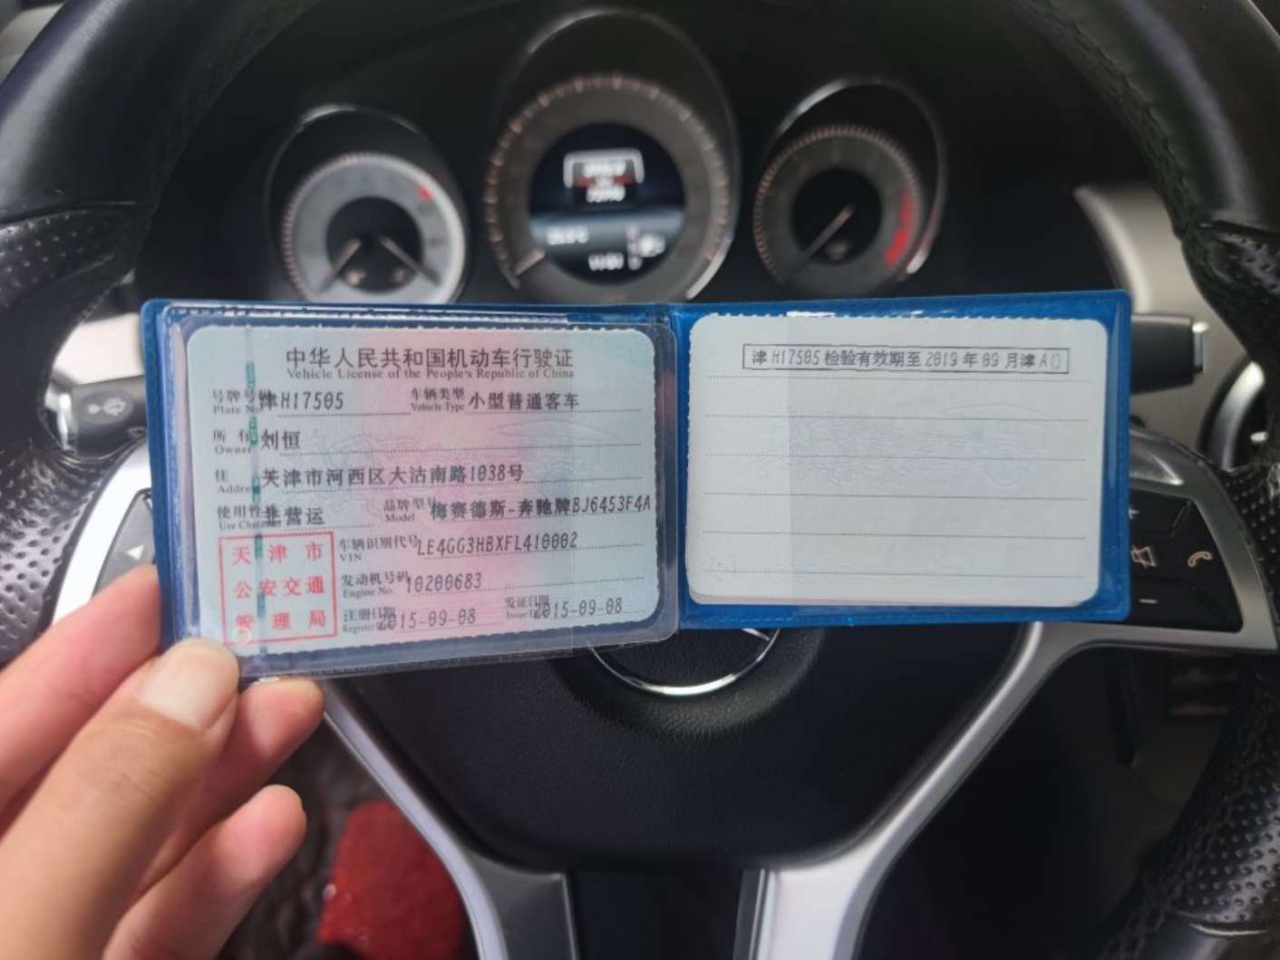 中华人民共和国机动车行驶证
Vehicle License of the People's Republic of China
号牌号 津H17505 车辆类型 小型普通客车
Plate No. Vehicle Type
所有 刘恒
Owner
住 天津市河西区大沽南路1038号
Addre
使用性 非营运 品牌型号 梅赛德斯-奔驰牌BJ6453F4A
Use Cha Model
天津市
公安交通
管理局
车辆识别代号 LE4GG3HBXFL410002
VIN
发动机号码 10200683
Engine No.
注册日期 2015-09-08 发证日期 2015-09-08
Register Issue
津H17505检验有效期至2019年09月津A()